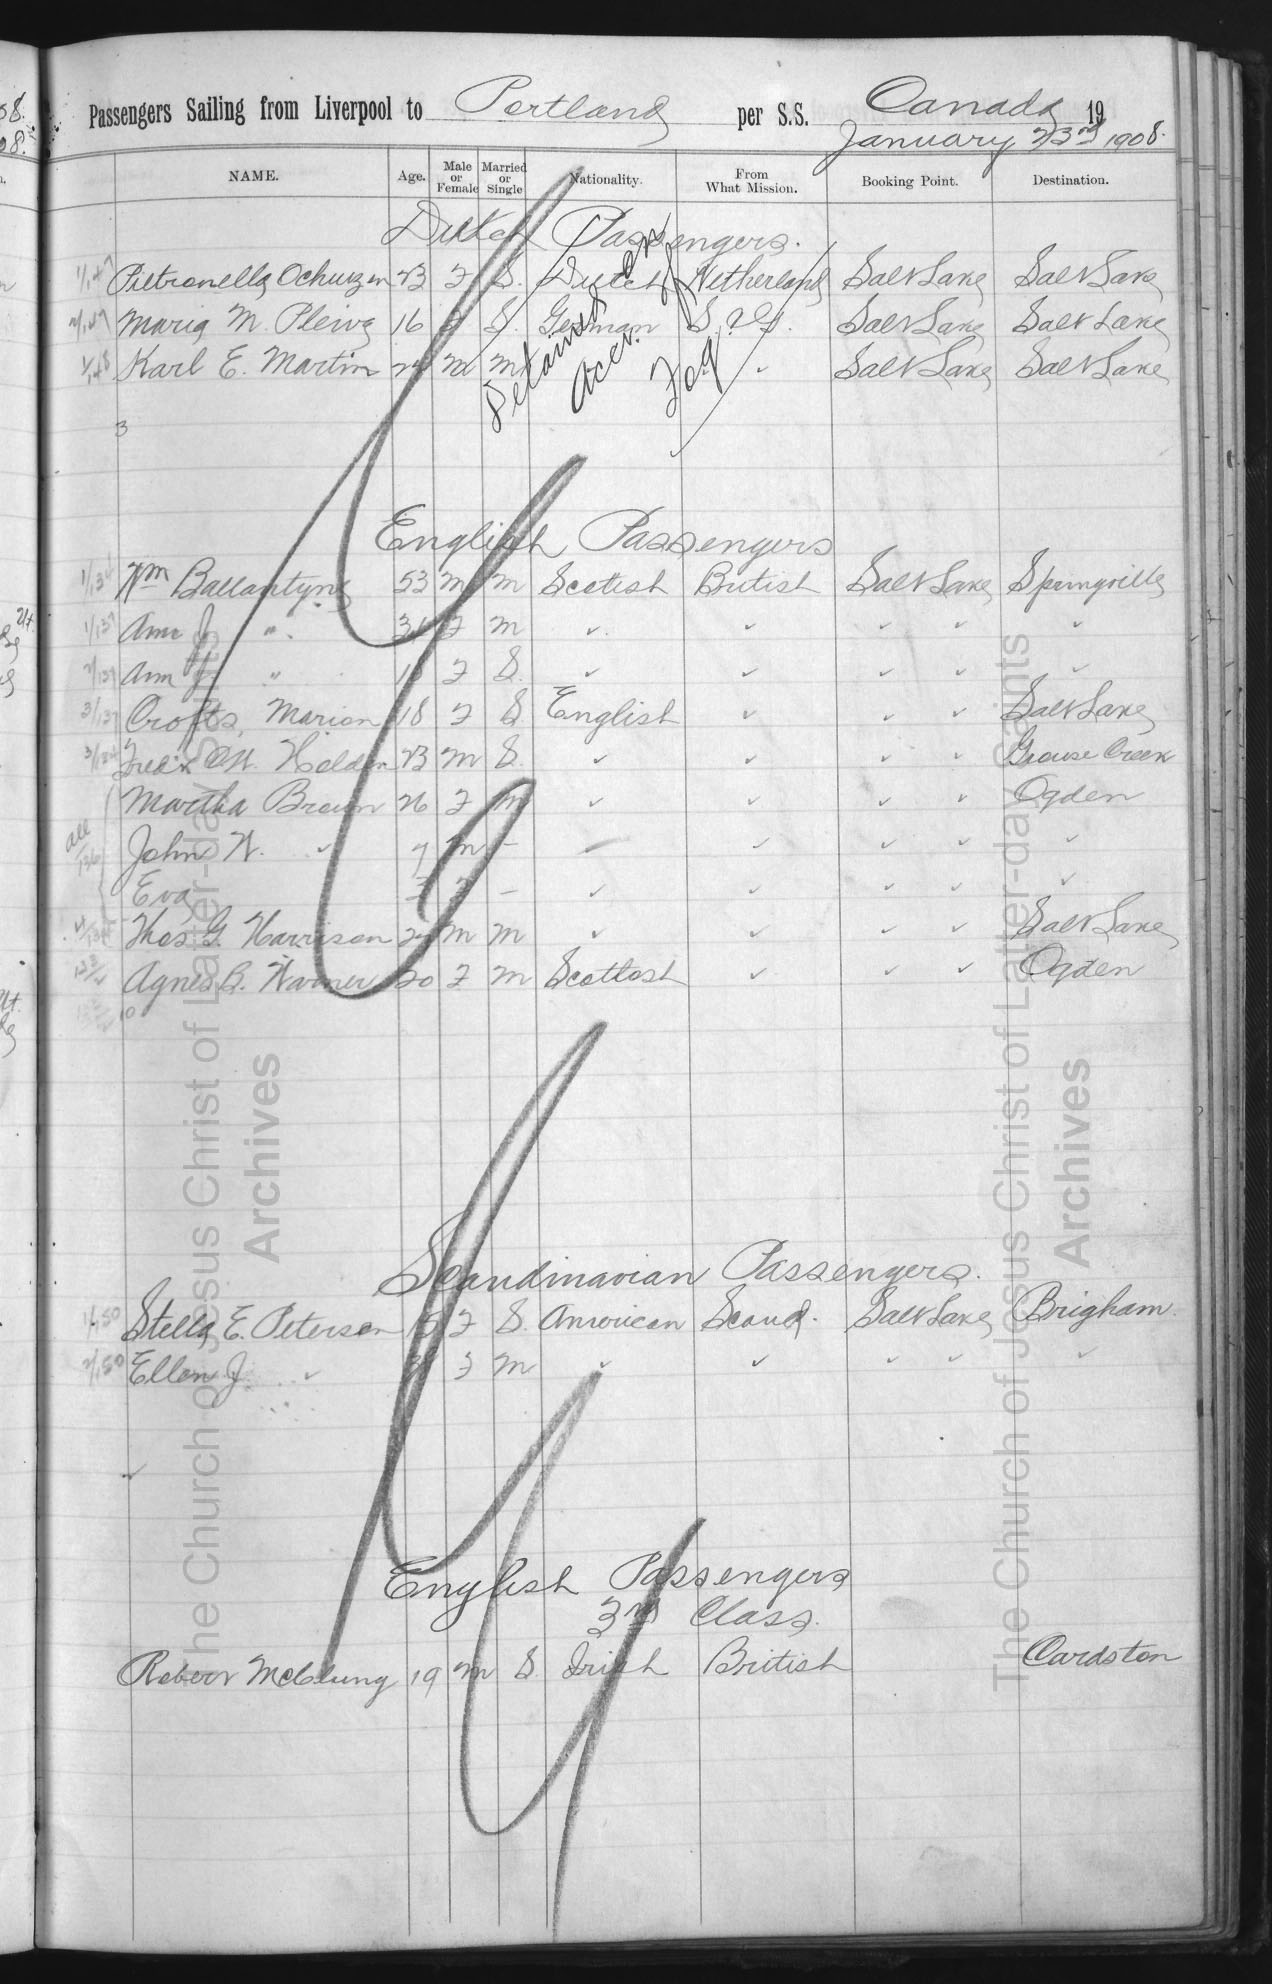 Passengers Sailing from Liverpool to Portland per S.S. Canada 19
January 23rd 1908.
NAME. Age. Male or Female Married or Single Nationality. From What Mission. Booking Point. Destination.
Dutch Passengers.
1/147 Pietronella Ochuizen 23 F S. Dutch Netherland Salt Lake Salt Lake
2/147 Maria M. Plewe 16 F S. German S. & G. Salt Lake Salt Lake
1/148 Karl E. Martin 24 M M ✓ Salt Lake Salt Lake
Detained on
Acct. of
Fog
3
English Passengers
1/134 Wm Ballantyne 53 M M Scotish British Salt Lake Springville
1/137 Ann J " 31 F M ✓ ✓ ✓ ✓ ✓
2/137 Ann J " F S. ✓ ✓ ✓ ✓ ✓
3/137 Crofts, Marion 18 F S English ✓ ✓ ✓ Salt Lake
3/134 Fredk W. Holden 23 M S. ✓ ✓ ✓ ✓ Grouse Creek
Martha Brown 26 F M ✓ ✓ ✓ ✓ Ogden
all 136 John W. ✓ 7 M - ✓ ✓ ✓ ✓
Eva 3 F - ✓ ✓ ✓ ✓ ✓
4/134 Thos G. Harrison 24 M M ✓ ✓ ✓ ✓ Salt Lake
Agnes B. Warner 20 F M Scottish ✓ ✓ ✓ Ogden
10
Scandinavian Passengers.
1/150 Stella E. Peterson F S. American Scand. Salt Lake Brigham
2/150 Ellen J. ✓ F M ✓ ✓ ✓ ✓ ✓
English Passengers
3rd Class.
Robert McClung 19 M S. Irish British Cardston
The Church of Jesus Christ of Latter-day Saints
Archives
The Church of Jesus Christ of Latter-day Saints
Archives